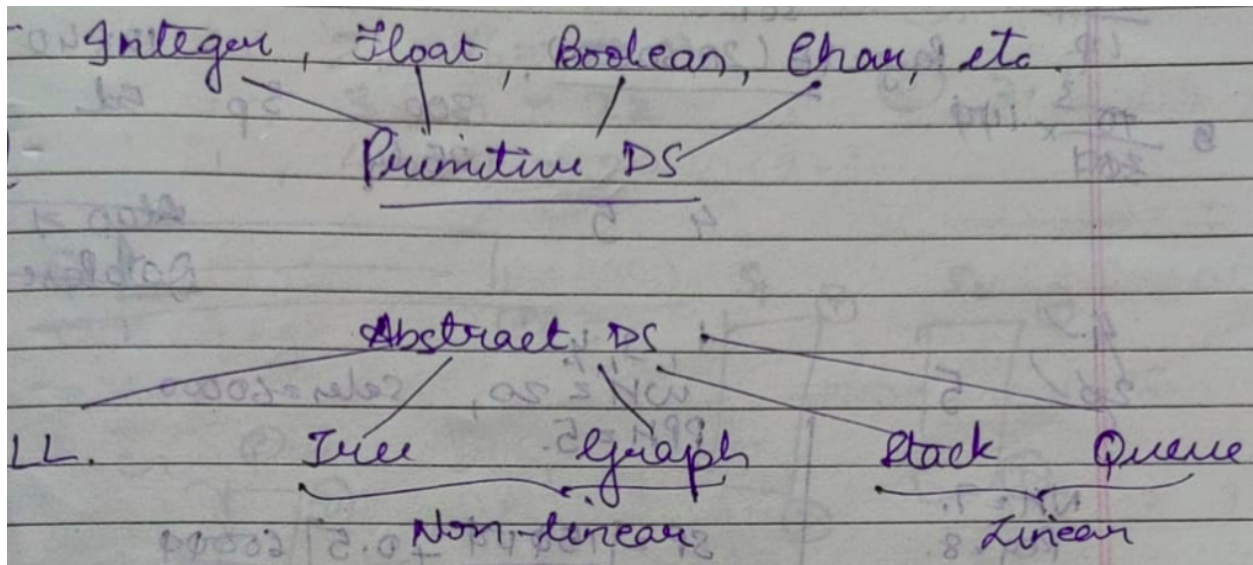 Integer, Float, Boolean, Char, etc.
Primitive DS
Abstract DS
LL. Tree Graph Stack Queue
Non-linear Linear